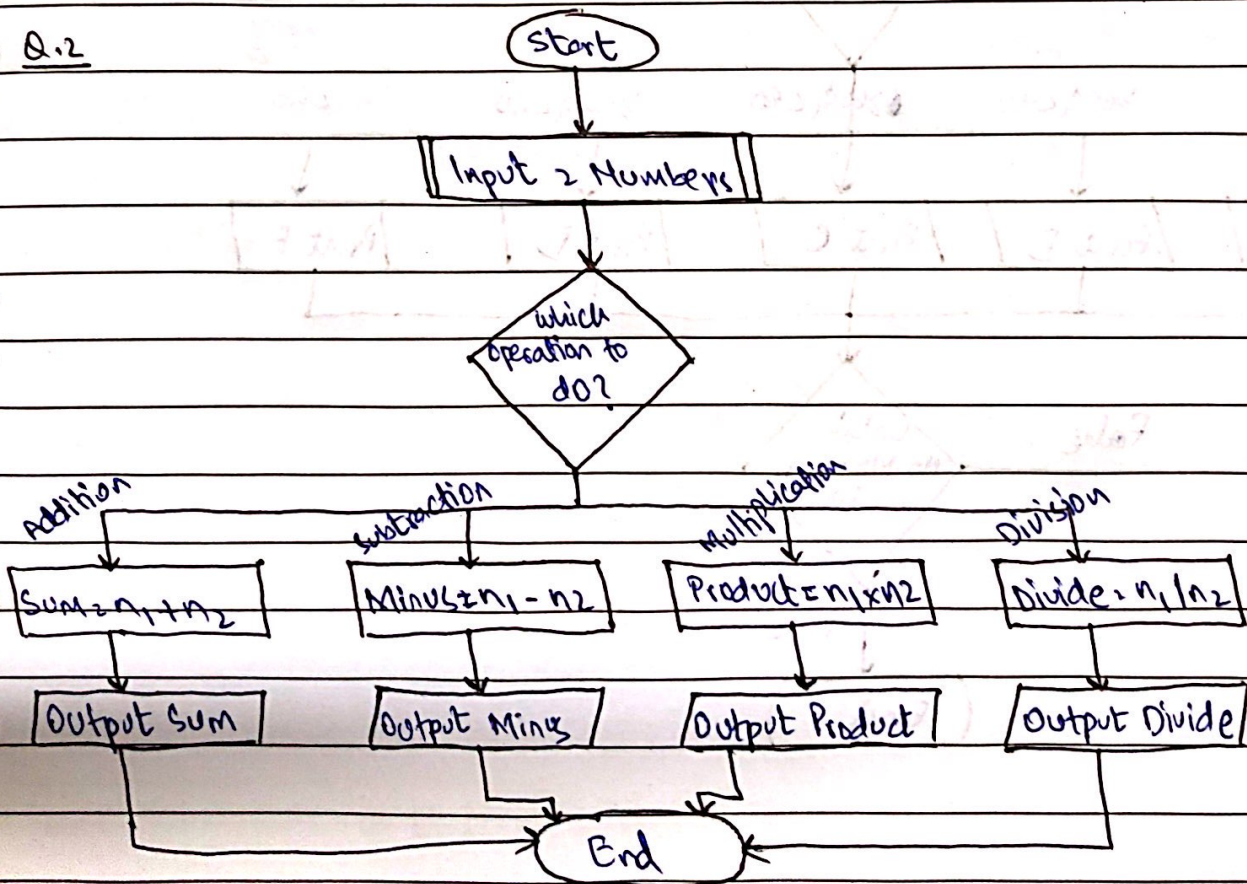 Q.2
Start
Input 2 Numbers
which
operation to
do?
Addition
Subtraction
Multiplication
Division
Sum = n1 + n2
Minus = n1 - n2
Product = n1 x n2
Divide = n1 / n2
Output Sum
Output Minus
Output Product
Output Divide
End